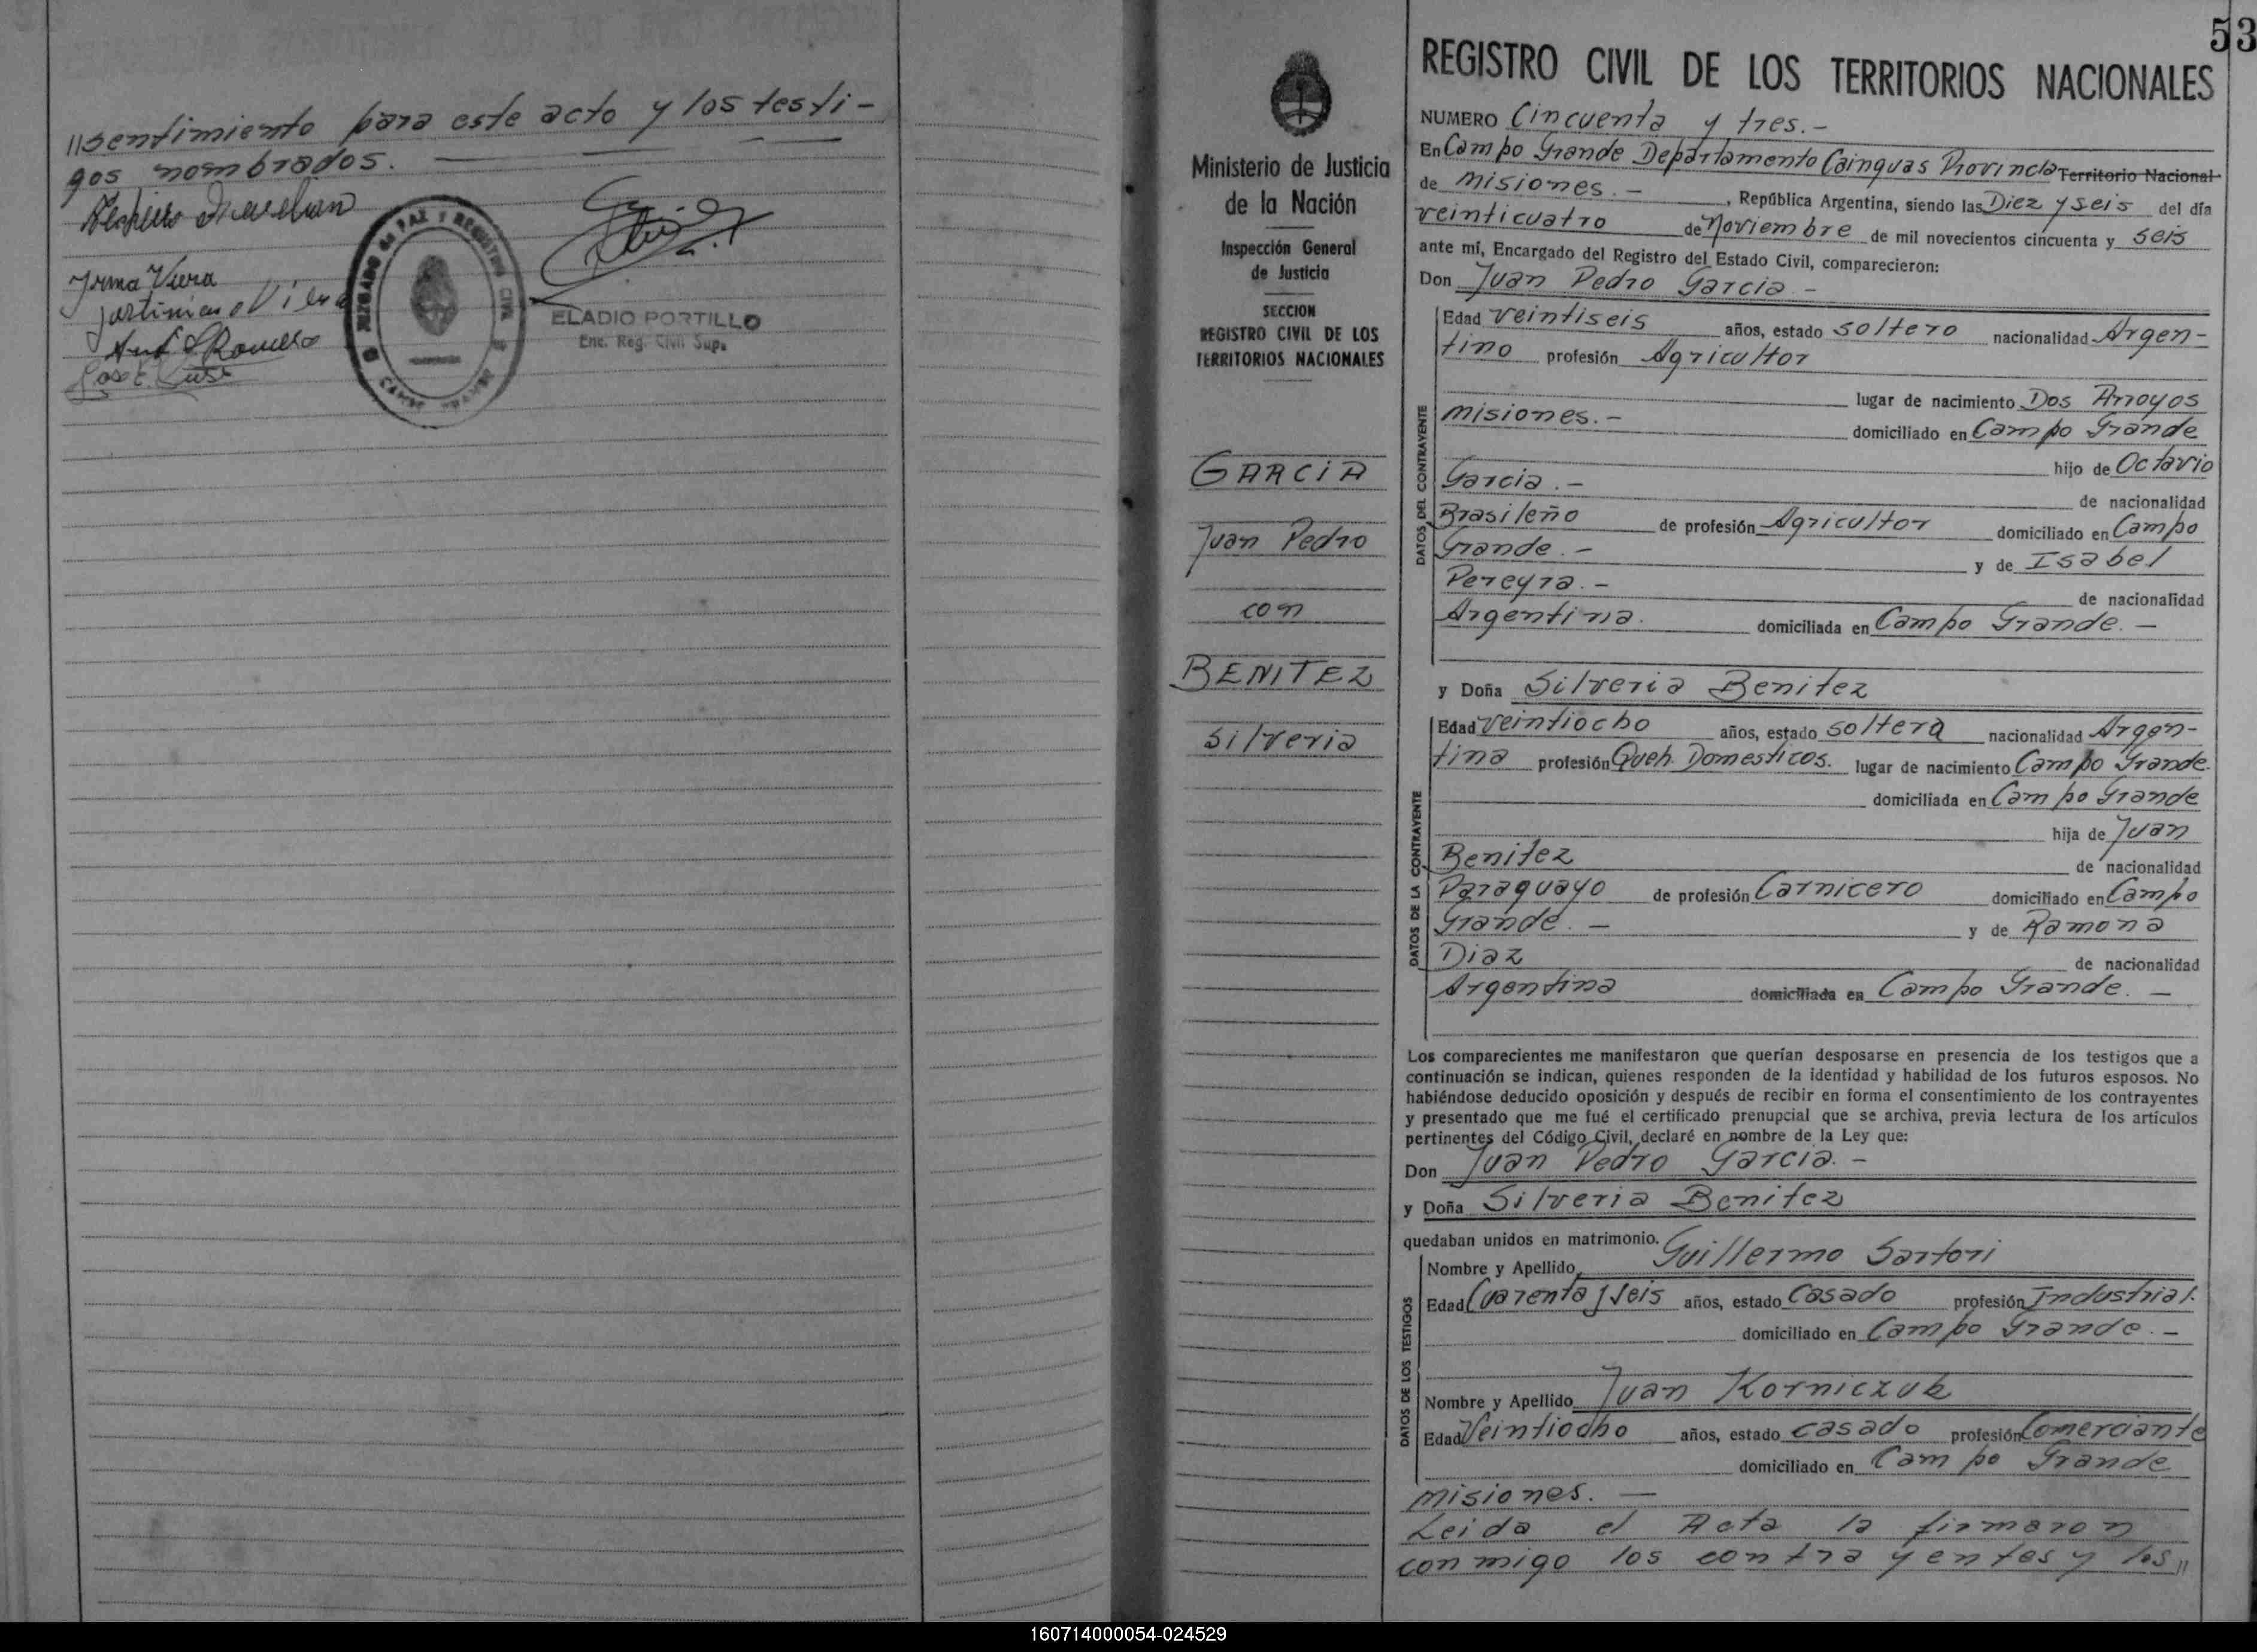 "sentimiento para este acto y los testi-
gos nombrados.
Irma Viera
ELADIO PORTILLO
Enc. Reg. Civil Sup.
JUZGADO de PAZ Y REGISTRO CIVIL
CAMPO GRANDE
53
Ministerio de Justicia
de la Nación
Inspección General
de Justicia
SECCION
REGISTRO CIVIL DE LOS
TERRITORIOS NACIONALES
GARCIA
Juan Pedro
con
BENITEZ
Silveria
REGISTRO CIVIL DE LOS TERRITORIOS NACIONALES
NUMERO Cincuenta y tres.-
En Campo Grande Departamento Cainguas Provincia Territorio Nacional
de Misiones.- , República Argentina, siendo las Diez y seis del día
veinticuatro de Noviembre de mil novecientos cincuenta y seis
ante mí, Encargado del Registro del Estado Civil, comparecieron:
Don Juan Pedro Garcia -
DATOS DEL CONTRAYENTE
Edad veintiseis años, estado soltero nacionalidad Argen-
tino profesión Agricultor
lugar de nacimiento Dos Arroyos
Misiones.- domiciliado en Campo Grande
hijo de Octavio
Garcia.- de nacionalidad
Brasileño de profesión Agricultor domiciliado en Campo
Grande.- y de Isabel
Pereyra.- de nacionalidad
Argentina. domiciliada en Campo Grande.-
y Doña Silveria Benitez
DATOS DE LA CONTRAYENTE
Edad veintiocho años, estado soltera nacionalidad Argen-
tina profesión Queh. Domesticos. lugar de nacimiento Campo Grande.
domiciliada en Campo Grande
hija de Juan
Benitez de nacionalidad
Paraguayo de profesión Carnicero domiciliado en Campo
Grande.- y de Ramona
Diaz de nacionalidad
Argentina domiciliada en Campo Grande.-
Los comparecientes me manifestaron que querían desposarse en presencia de los testigos que a
continuación se indican, quienes responden de la identidad y habilidad de los futuros esposos. No
habiéndose deducido oposición y después de recibir en forma el consentimiento de los contrayentes
y presentado que me fué el certificado prenupcial que se archiva, previa lectura de los artículos
pertinentes del Código Civil, declaré en nombre de la Ley que:
Don Juan Pedro Garcia.-
y Doña Silveria Benitez
quedaban unidos en matrimonio.
DATOS DE LOS TESTIGOS
Nombre y Apellido Guillermo Sartori
Edad Cuarenta y seis años, estado Casado profesión Industrial.
domiciliado en Campo Grande.-
Nombre y Apellido Juan Korniczuk
Edad Veintiocho años, estado casado profesión Comerciante
domiciliado en Campo Grande
Misiones.-
Leida el Acta la firmaron
conmigo los contrayentes y los"
160714000054-024529